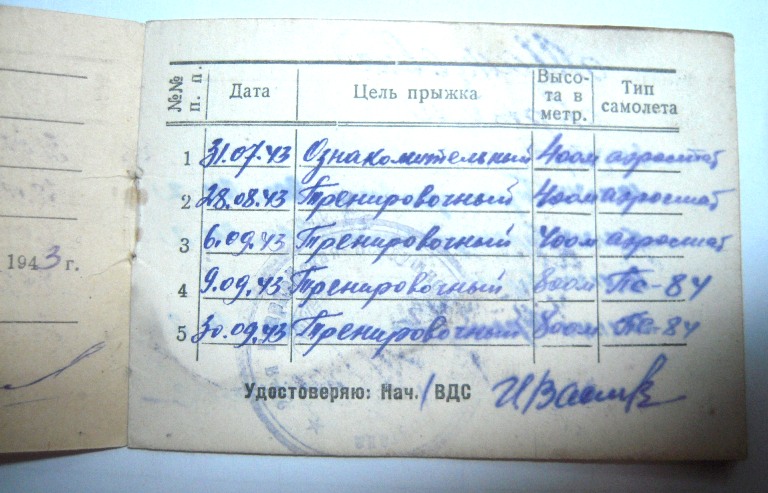 1943 г.
№№ п. п. Дата Цель прыжка Высота в метр. Тип самолета
1 31.07.43 Ознакомительный 400м аэростат
2 28.08.43 Тренировочный 400м аэростат
3 6.09.43 Тренировочный 400м аэростат
4 9.09.43 Тренировочный 800м ПС-84
5 30.09.43 Тренировочный 800м ПС-84
Удостоверяю: Нач. ВДС